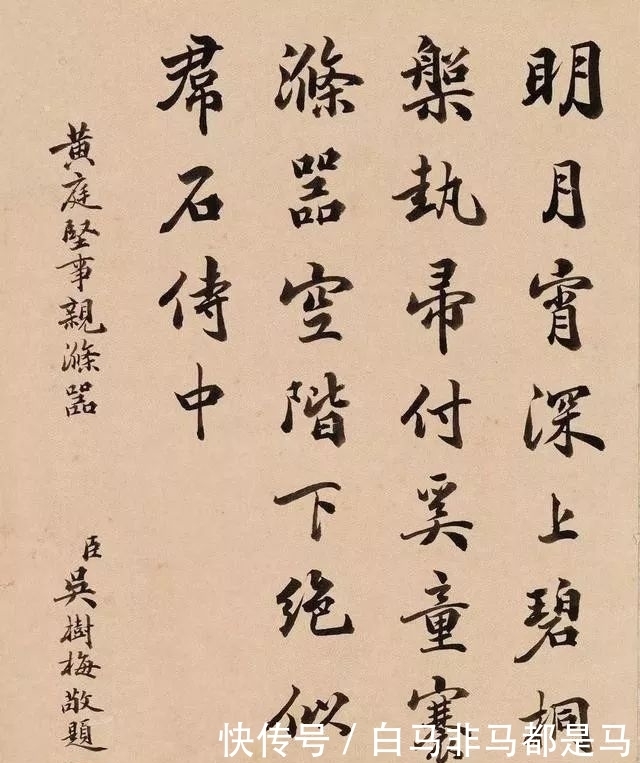 明月宵深上碧桐
槃執帚付奚童
滌器空階下絕似
帬石侍中
黃庭堅事親滌器
臣吳樹梅敬題
快传号/白马非马都是马